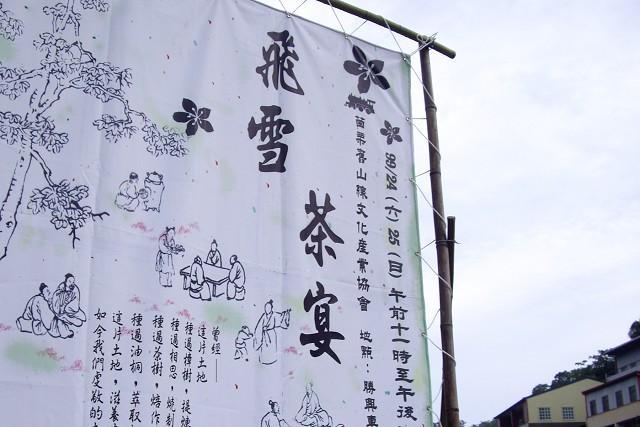 24(六)25(日)午前十一時至午後
苗栗舊山線文化產業協會 地點：勝興車
飛雪
茶宴
曾經——
這片土地
種過樟樹，提煉
種過相思，燒
種過茶樹，焙作
種過油桐，萃取
這片土地，滋養
如今我們虔敬的